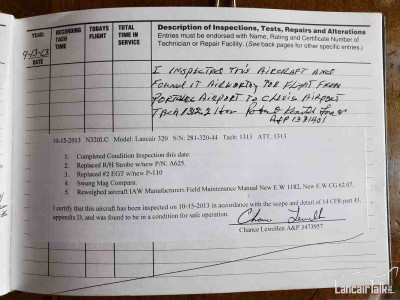 YEAR:
RECORDING TACH TIME
TODAYS FLIGHT
TOTAL TIME IN SERVICE
Description of Inspections, Tests, Repairs and Alterations
Entries must be endorsed with Name, Rating and Certificate Number of
Technician or Repair Facility. (See back pages for other specific entries.)
9-13-13
DATE
I INSPECTED THIS AIRCRAFT AND
FOUND IT AIRWORTHY FOR FLIGHT FROM
AIRPORT TO AIRPORT
TACH
A&P
10-15-2013 N320LC Model: Lancair 320 S/N: 281-320-44 Tach: 1313 ATT. 1313
1. Completed Condition Inspection this date.
2. Replaced R/H Strobe w/new P/N: A625.
3. Replaced #2 EGT w/new P-110
4. Swung Mag Compass.
5. Reweighed aircraft IAW Manufacturers Field Maintenance Manual New E.W 1182, New E.W CG 62.07.
I certify that this aircraft has been inspected on 10-15-2013 in accordance with the scope and detail of 14 CFR part 43,
appendix D, and was found to be in a condition for safe operation.
Chance Lewellen
Chance Lewellen A&P 3473957
LancairTalk.net